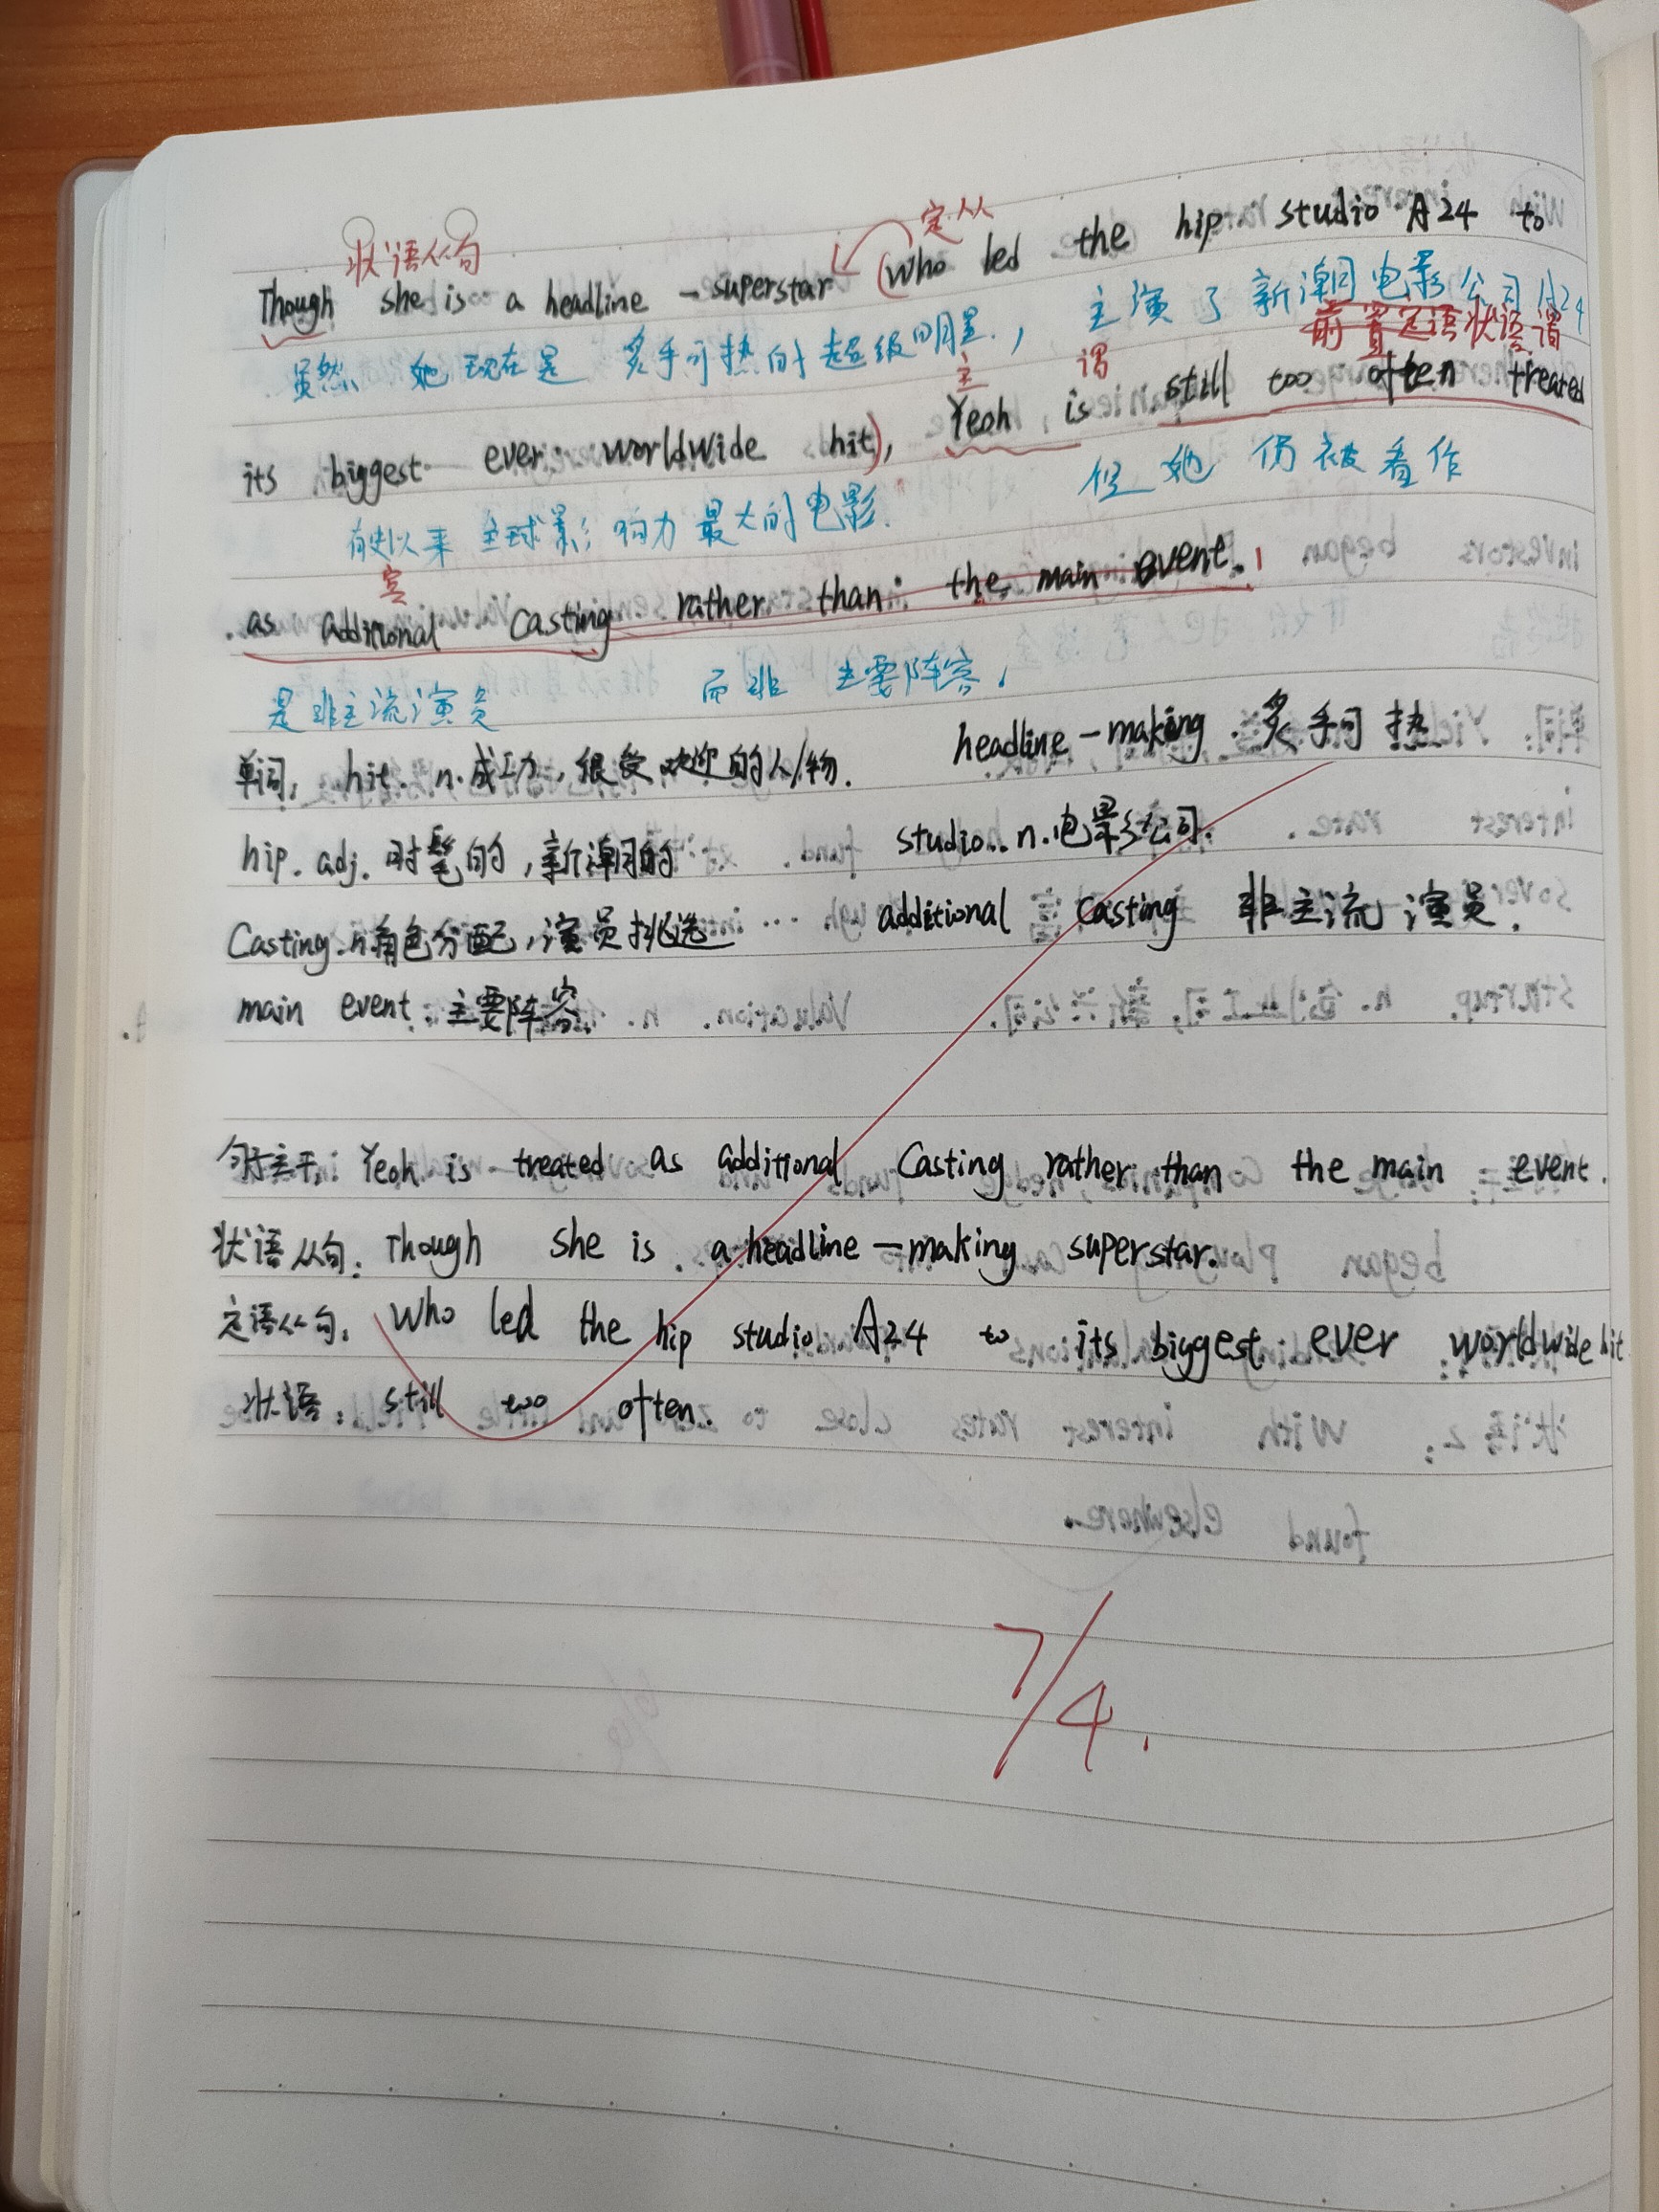 状语从句 定从
Though she is a headline - superstar (who led the hip studio A24 to
虽然 她现在是 多手可热的超级明星, 主演了新潮电影公司A24
主 谓 前置定语 状语 谓
its biggest ever worldwide hit), Yeoh is still too often treated
有史以来全球影响力最大的电影. 但她仍被看作
宾
as additional casting rather than the main event.
是非主流演员 而非 主要阵容.
单词, hit. n. 成功, 很受欢迎的人/物. headline-making 多手可热
hip. adj. 时髦的, 新潮的 studio. n. 电影公司.
Casting. n. 角色分配, 演员挑选 additional casting 非主流演员.
main event. 主要阵容.
句子主干: Yeoh is treated as additional casting rather than the main event.
状语从句: Though she is a headline-making superstar.
定语从句: Who led the hip studio A24 to its biggest ever worldwide hit
状语: still too often.
7/4.